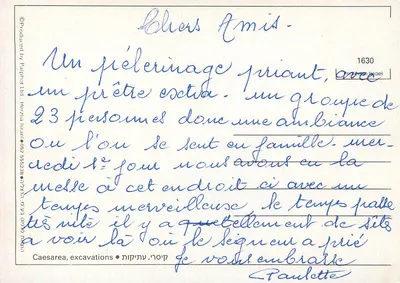 Chers Amis.
1630
Un pélerinage priant, avec
un prêtre extra. un groupe de
23 personnes donc une ambiance
ou l'on se sent en famille. mer-
credi 1er jour nous avons eu la
messe à cet endroit ci avec un
temps merveilleuse, le temps passe
très vite il y a tellement de sîtes
a voir là où le seigneur a prié
je vous embrasse
Paulette
Caesarea, excavations • קיסרי, עתיקות
©Produced by Palphot Ltd. Herzlia Israel